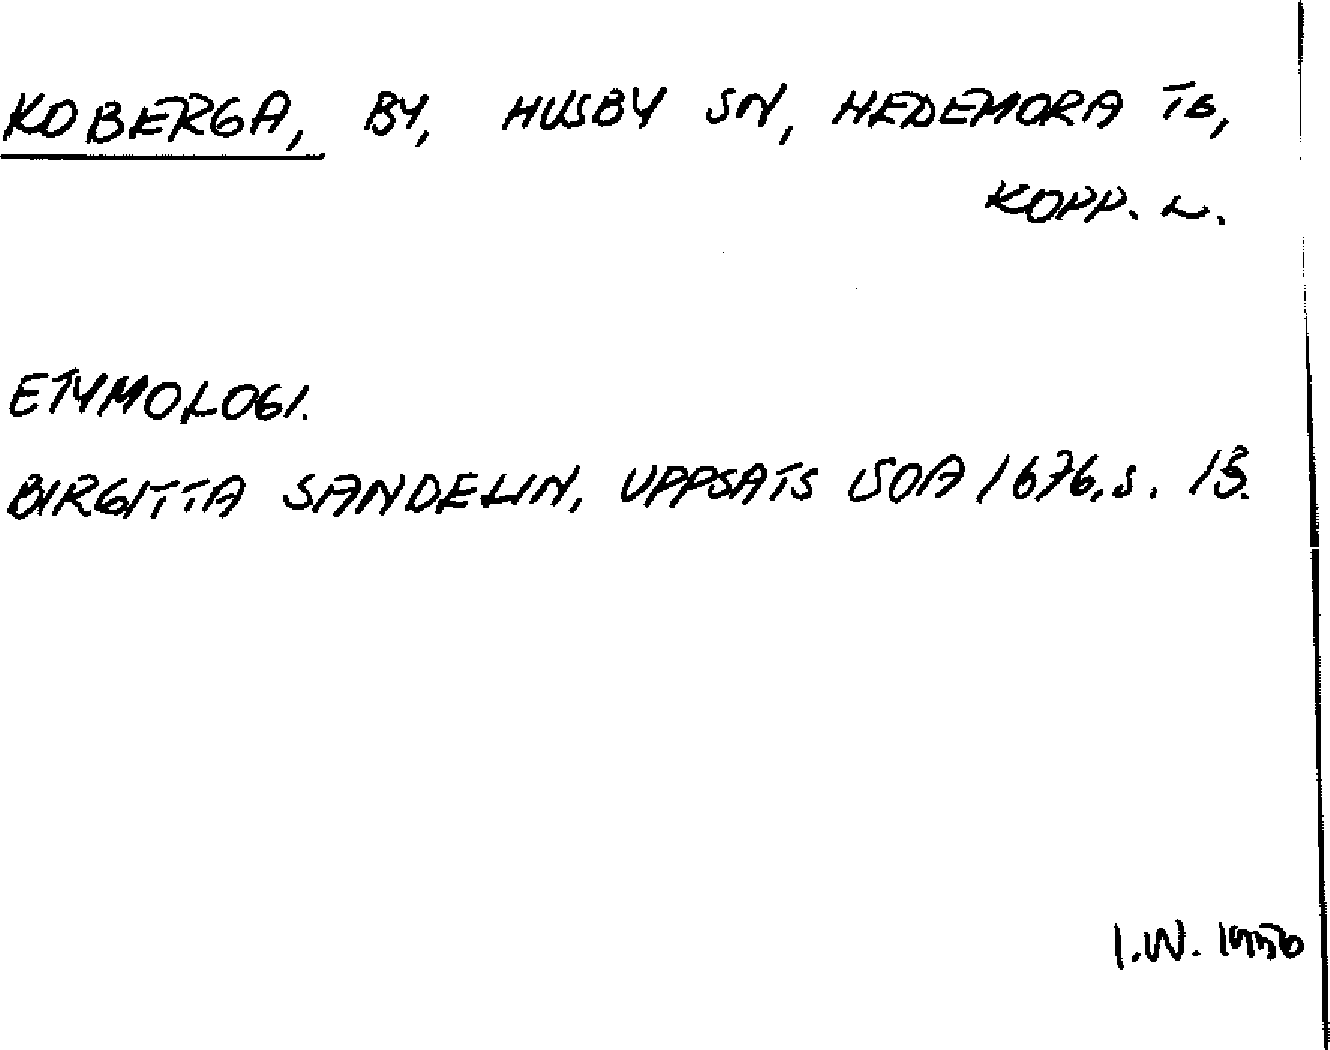 KOBERGA, BY, HUSBY SN, HEDEMORA TG,
KOPP. L.
ETYMOLOGI.
BIRGITTA SANDELIN, UPPSATS SOA 1676, s. 13.
I.W.